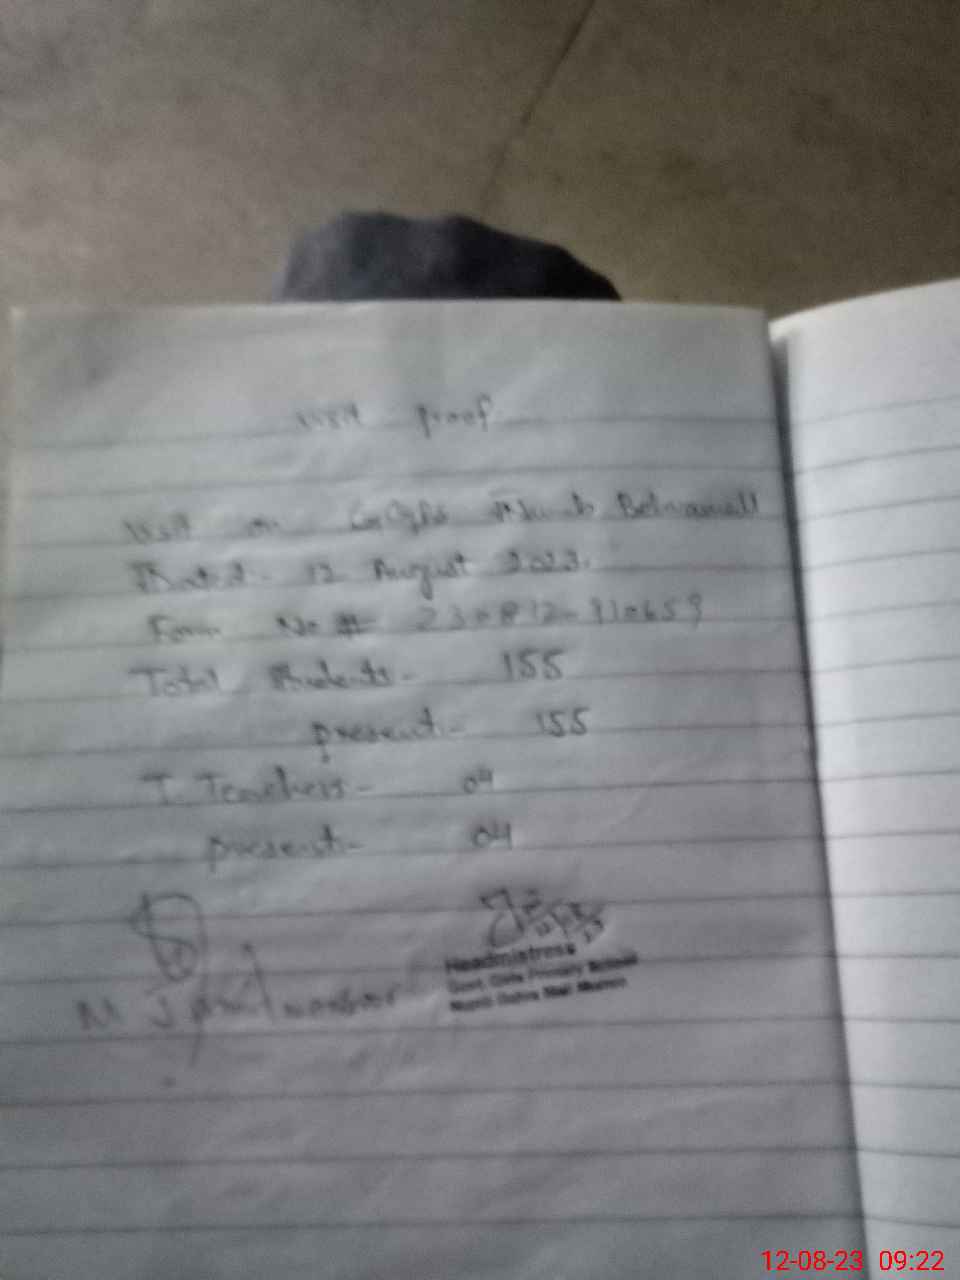 Visit proof
Visit on GGPS
Dated - 12 August 2023.
Form No # 230812-910659
Total Students - 155
present - 155
T. Teachers - 04
present - 04
M
Headmistress
Govt. Girls Primary School
12-08-23 09:22